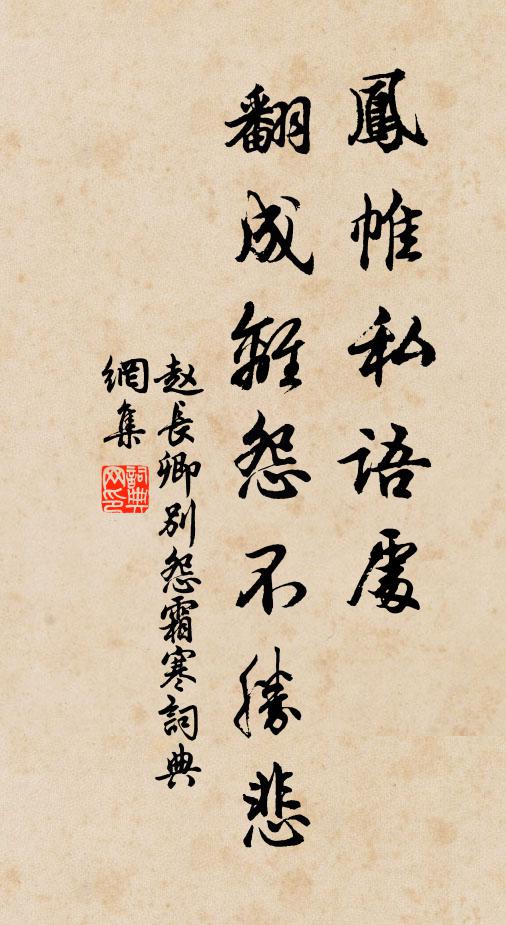 鳳帷私語處
翻成離怨不勝悲
赵長卿別怨霜寒詞典
網集
詞典
网印